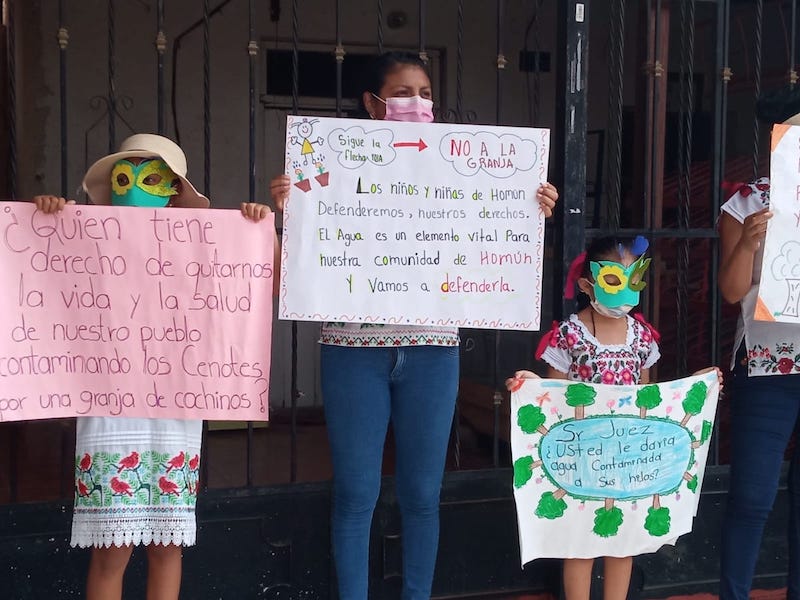 ¿Quien tiene
derecho de quitarnos
la vida y la salud
de nuestro pueblo
contaminando los Cenotes
por una granja de cochinos?
Sigue la
flecha
NO A LA
GRANJA
Los niños y niñas de Homún
Defenderemos, nuestros derechos.
El Agua es un elemento vital Para
nuestra comunidad de Homún
Y Vamos a defenderla.
Sr. Juez
¿Usted le daria
agua Contaminada
a Sus hijas?